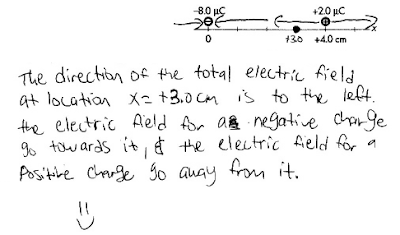 -8.0 μC +2.0 μC
0 +3.0 +4.0 cm x
The direction of the total electric field
at location x= +3.0 cm is to the left.
the electric field for a negative charge
go towards it, & the electric field for a
Positive charge go away from it.